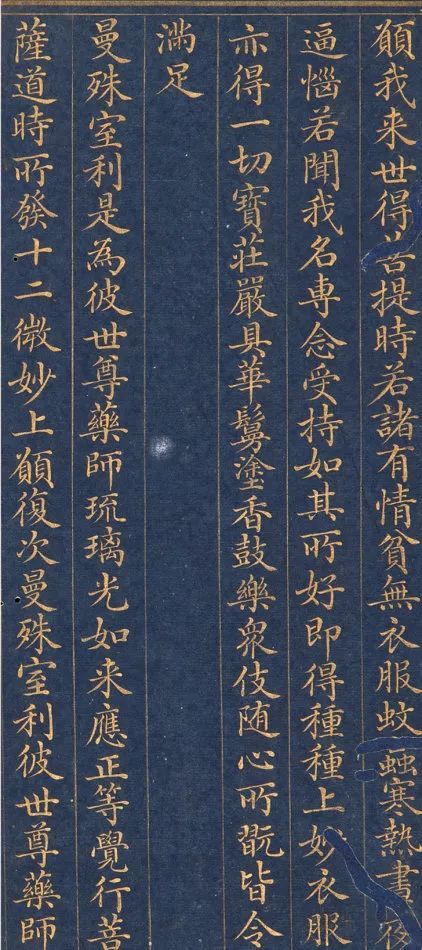 願我来世得菩提時若諸有情貧無衣服蚊䖟寒熱晝夜
逼惱若聞我名專念受持如其所好即得種種上妙衣服
亦得一切寶莊嚴具華鬘塗香鼓樂衆伎随心所翫皆令
滿足
曼殊室利是為彼世尊藥師琉璃光如来應正等覺行菩
薩道時所發十二微妙上願復次曼殊室利彼世尊藥師